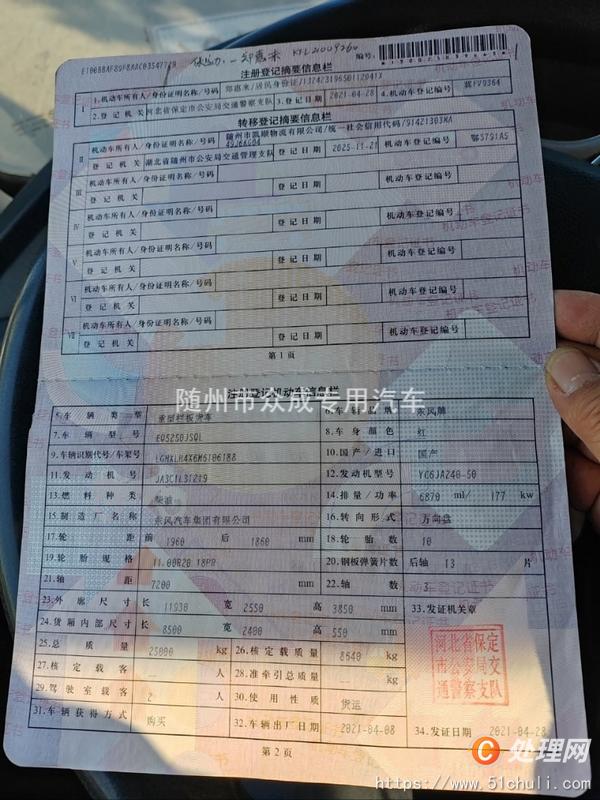 E100BBAF89F8AAC03547719
编号:
注册登记摘要信息栏
Ⅰ 1.机动车所有人/身份证明名称/号码 郑惠来/居民身份证/13242319650112041X
2.登记机关 河北省保定市公安局交通警察支队 3.登记日期 2021-04-28 4.机动车登记编号 冀FV9364
转移登记摘要信息栏
Ⅱ 机动车所有人/身份证明名称/号码 随州市凯顺物流有限公司/统一社会信用代码/91421303MA
登记机关 湖北省随州市公安局交通管理支队 登记日期 2025-11-21 机动车登记编号 鄂S791A5
Ⅲ 机动车所有人/身份证明名称/号码
登记机关 登记日期 机动车登记编号
Ⅳ 机动车所有人/身份证明名称/号码
登记机关 登记日期 机动车登记编号
Ⅴ 机动车所有人/身份证明名称/号码
登记机关 登记日期 机动车登记编号
Ⅵ 机动车所有人/身份证明名称/号码
登记机关 登记日期 机动车登记编号
Ⅶ 机动车所有人/身份证明名称/号码
登记机关 登记日期 机动车登记编号
第1页
注册登记机动车信息栏
随州市众成专用汽车
5.车辆类型 重型栏板货车 6.车辆品牌 东风牌
7.车辆型号 EQ5250JSQL 8.车身颜色 红
9.车辆识别代号/车架号 10.国产/进口 国产
11.发动机号 12.发动机型号 YC6JA240-50
13.燃料种类 柴油 14.排量/功率 6870 ml/ 177 kw
15.制造厂名称 东风汽车集团有限公司 16.转向形式 方向盘
17.轮距 前 1960 后 1860 mm 18.轮胎数 10
19.轮胎规格 11.00R20 18PR 20.钢板弹簧片数 后轴 13 片
21.轴距 7200 mm 22.轴数 3
23.外廓尺寸 长 11930 宽 2550 高 3850 mm 33.发证机关章
24.货厢内部尺寸 长 8500 宽 2400 高 550 mm
25.总质量 25000 kg 26.核定载质量 8640 kg
27.核定载客 -- 人 28.准牵引总质量 -- kg
29.驾驶室载客 2 人 30.使用性质 货运
河北省保定
市公安局交
通警察支队
31.车辆获得方式 购买 32.车辆出厂日期 2021-04-08 34.发证日期 2021-04-28
第2页
C 处理网
https://www.51chuli.com/